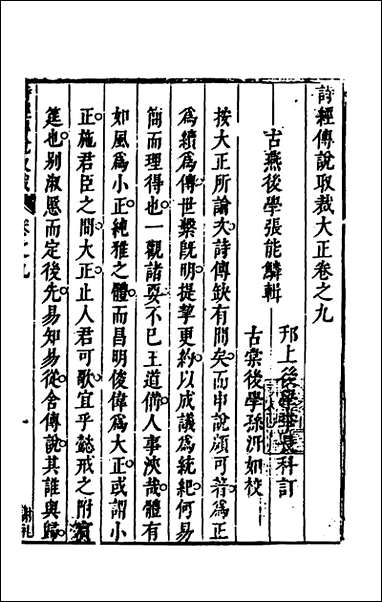 詩經傳說取裁大正卷之九
古燕後學張能鱗輯
邗上後學
科訂
古棠後學孫沂如校
按大正所論次詩傳缺有間矣而申說頗可著為正
為續為傳世檃旣明提挈更約以成議為統紀何易
簡而理得也一觀諸
不已王道備人事浹哉體有
如風為小正純雅之體而昌明俊偉為大正或謂小
正施君臣之間大正止人君可歌宜乎懿戒之附
筵也别淑慝而定後先易知易從舍傳說其誰與歸
詩經傳說取裁
卷之九
一
謝礼